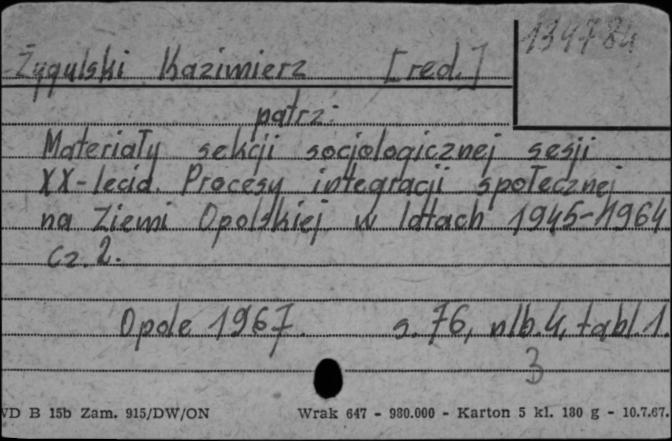 134784
Żygulski Kazimierz [red.]
patrz:
Materiały sekcji socjologicznej sesji
XX-lecia. Procesy integracji społecznej
na Ziemi Opolskiej w latach 1945-1964
cz. 2.
Opole 1967. s. 76, nlb. 4, tabl. 1.
3
WD B 15b Zam. 915/DW/ON Wrak 647 - 980.000 - Karton 5 kl. 180 g - 10.7.67.